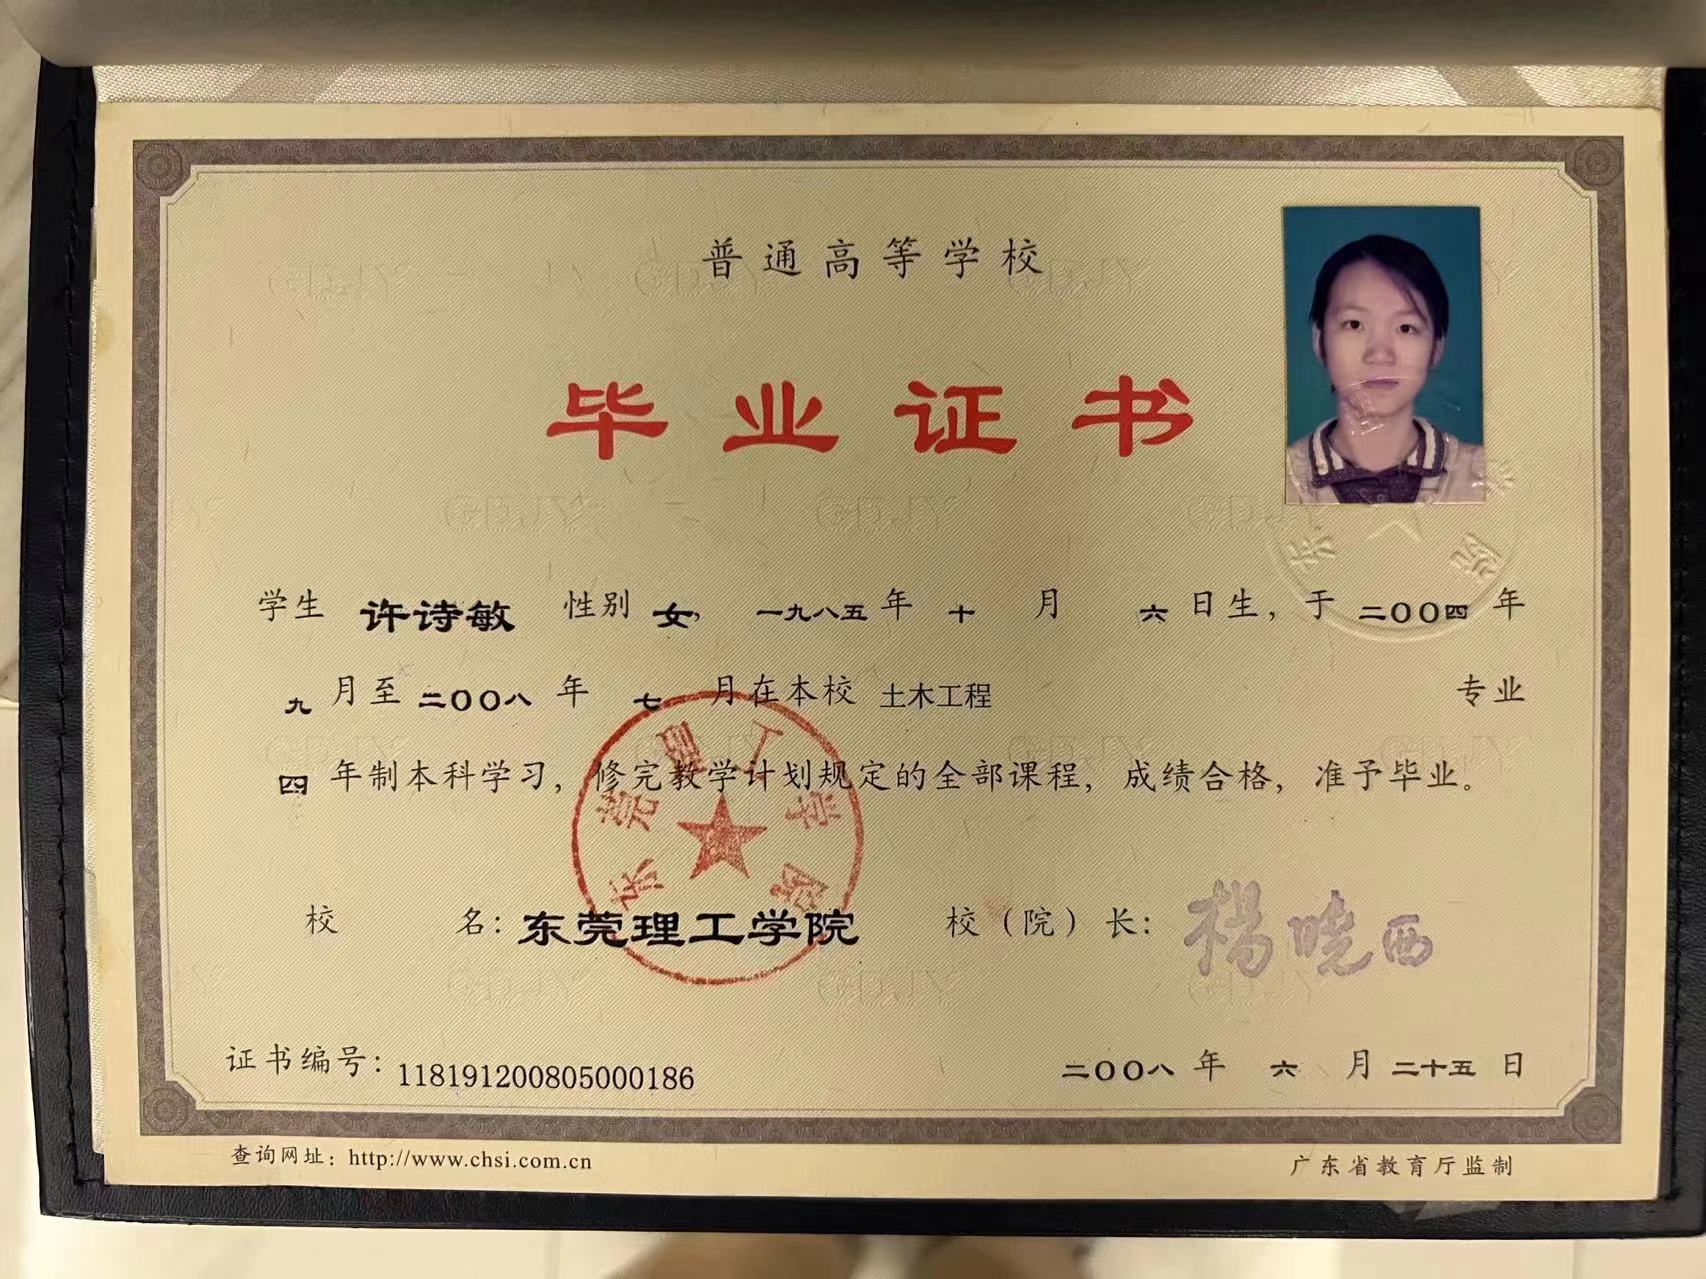 普通高等学校
毕业证书
学生 许诗敏 性别 女, 一九八五 年 十 月 六 日生, 于 二〇〇四 年
九 月至 二〇〇八 年 七 月在本校 土木工程 专业
四 年制本科学习, 修完教学计划规定的全部课程, 成绩合格, 准予毕业。
校 名: 东莞理工学院 校(院)长: 杨晓西
东莞理工学院
证书编号: 118191200805000186 二〇〇八 年 六 月 二十五 日
查询网址: http://www.chsi.com.cn 广东省教育厅监制
GDJY